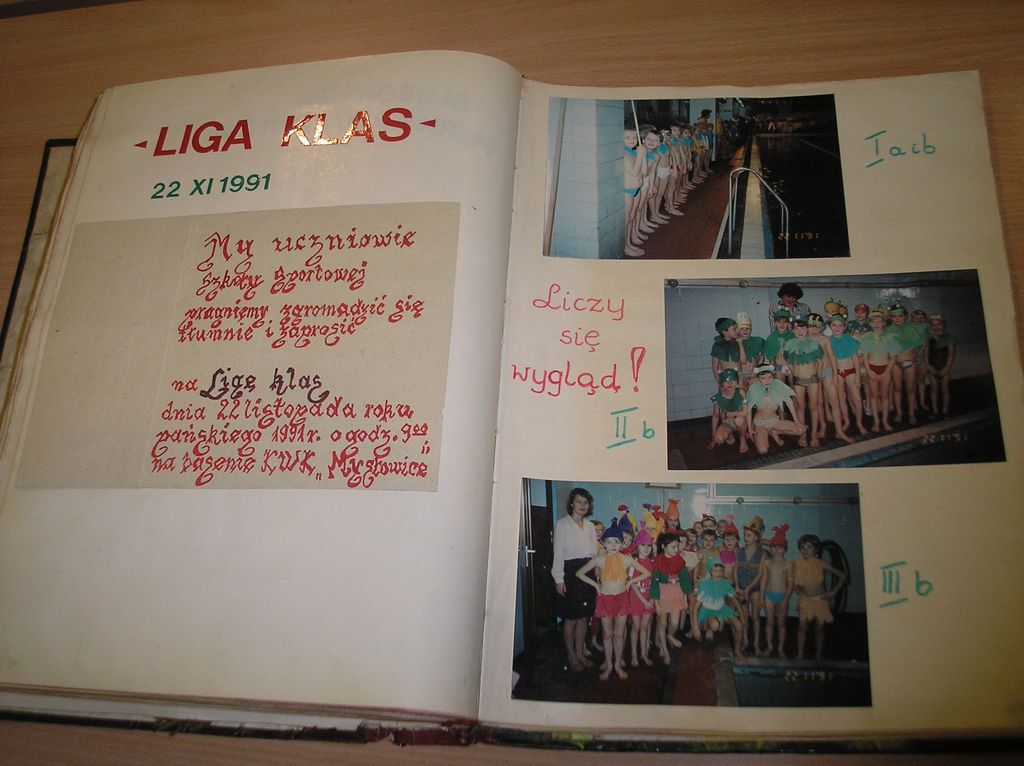 -LIGA KLAS-
22 XI 1991
My uczniowie
Szkoły Sportowej
pragniemy zgromadzić się
tłumnie i zaprosić
na Ligę klas
dnia 22 listopada roku
pańskiego 1991 r. o godz. 9⁰⁰
na basenie KWK „Mysłowice"
I a i b
22 11 '91
Liczy
się
wygląd!
II b
22 11 '91
III b
22 11 '91